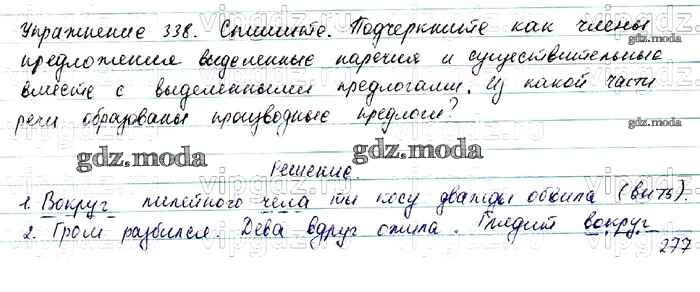 Упражнение 338. Спишите. Подчеркните как члены
предложения выделенные наречия и существительные
вместе с выделенными предлогами. Из какой части
речи образованы производные предлоги?
gdz.moda
gdz.moda
Решение
1. Вокруг лилейного чела ты косу дважды обвила (вить).
2. Гром разбился. Дева вдруг ожила. Глядит вокруг
277